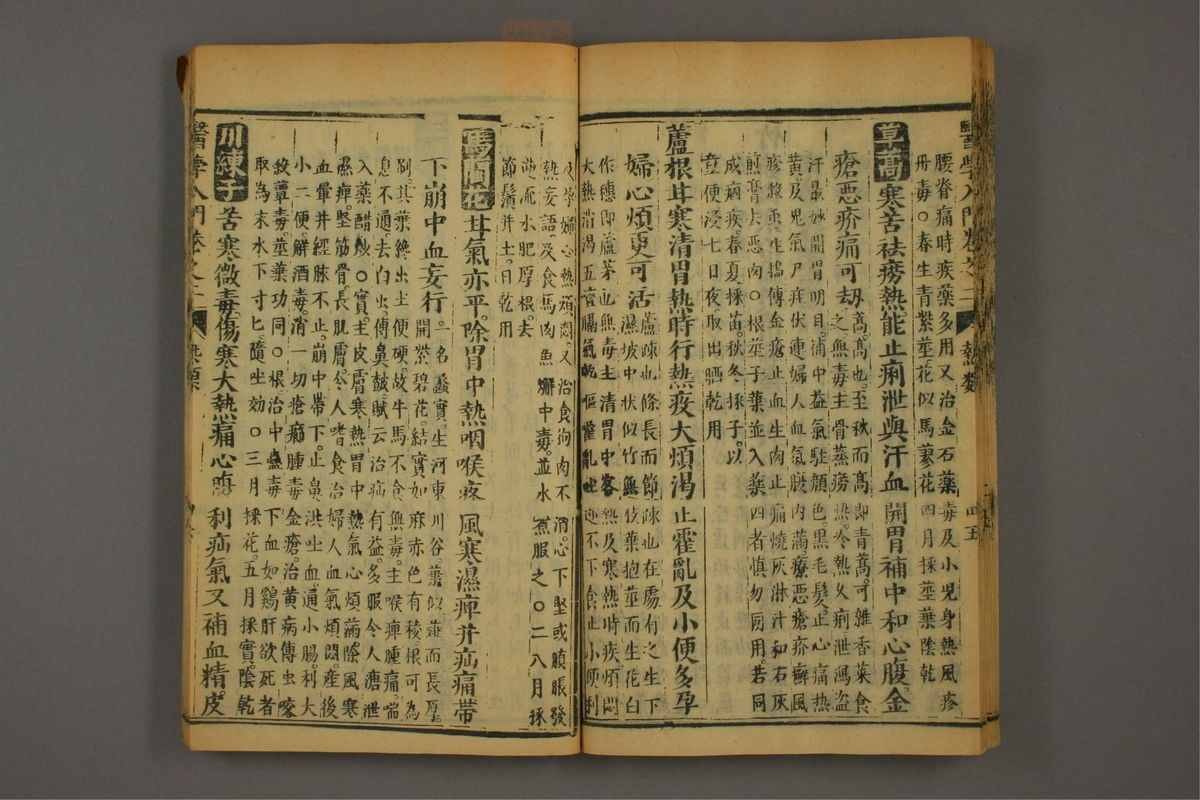 醫學入門卷之二 熱類 四五
腰脊痛時疾藥多用又治金石藥毒及小兒身熱風疹
丹毒○春生青紫莖花似馬蓼花四月採莖葉陰乾
草蒿寒苦祛癆熱能止痢泄與汗血開胃補中和心腹金
瘡惡疥痛可刼
蒿高也至秋而高即青蒿可雜香菜食
之無毒主骨蒸癆熱冷熱久痢泄瀉盜
汗最妙開胃明目補中益氣駐顏色黑毛髮止心痛熱
黃及鬼氣尸疰伏連婦人血氣腹內滿療惡瘡疥癬風
疹殺虱生搗傅金瘡止血生肉止痛燒灰淋汁和石灰
煎膏去惡肉○根莖子葉並入藥四者慎勿同用若同
成痼疾春夏採苗秋冬採子以
童便浸七日夜取出晒乾用
蘆根甘寒清胃熱時行熱疫大煩渴止霍亂及小便多孕
婦心煩更可活
蘆疎也條長而節疎也在處有之生下
濕坡中狀似竹無枝葉抱莖而生花白
作穗即蘆茅也無毒主清胃中客熱及寒熱時疾煩悶
大熱消渴五膈氣乾嘔霍亂吐逆不下食止小便利
及孕婦心熱煩悶又治食狗肉不消心下堅或䐜脹發
熱妄語及食馬肉魚蠏中毒並水煮服之○二八月採
逆流水肥厚根去
節鬚并土日乾用
馬藺花甘氣亦平除胃中熱咽喉疼風寒濕痺并疝痛帶
下崩中血妄行
一名蠡實生河東川谷葉似薤而長厚
開紫碧花結實如麻赤色有稜根可為
刷其葉纔出土便硬故牛馬不食無毒主喉痺腫痛喘
息不通去白虫傅鼻皶賦云治疝有益多服令人溏泄
入藥醋炒○實主皮膚寒熱胃中熱氣心煩滿除風寒
濕痺堅筋骨長肌膚令人嗜食治婦人血氣煩悶產後
血暈并經脉不止崩中帶下止鼻洪吐血通小腸利大
小二便解酒毒消一切瘡癤腫毒金瘡治黃病傅虫咬
殺蕈毒莖葉功同○根治中蠱毒下血如鷄肝欲死者
取為末水下寸匕隨吐効○三月採花五月採實陰乾
川練子苦寒微毒傷寒大熱痛心腹利疝氣又補血精皮
醫學入門卷之二 熱類